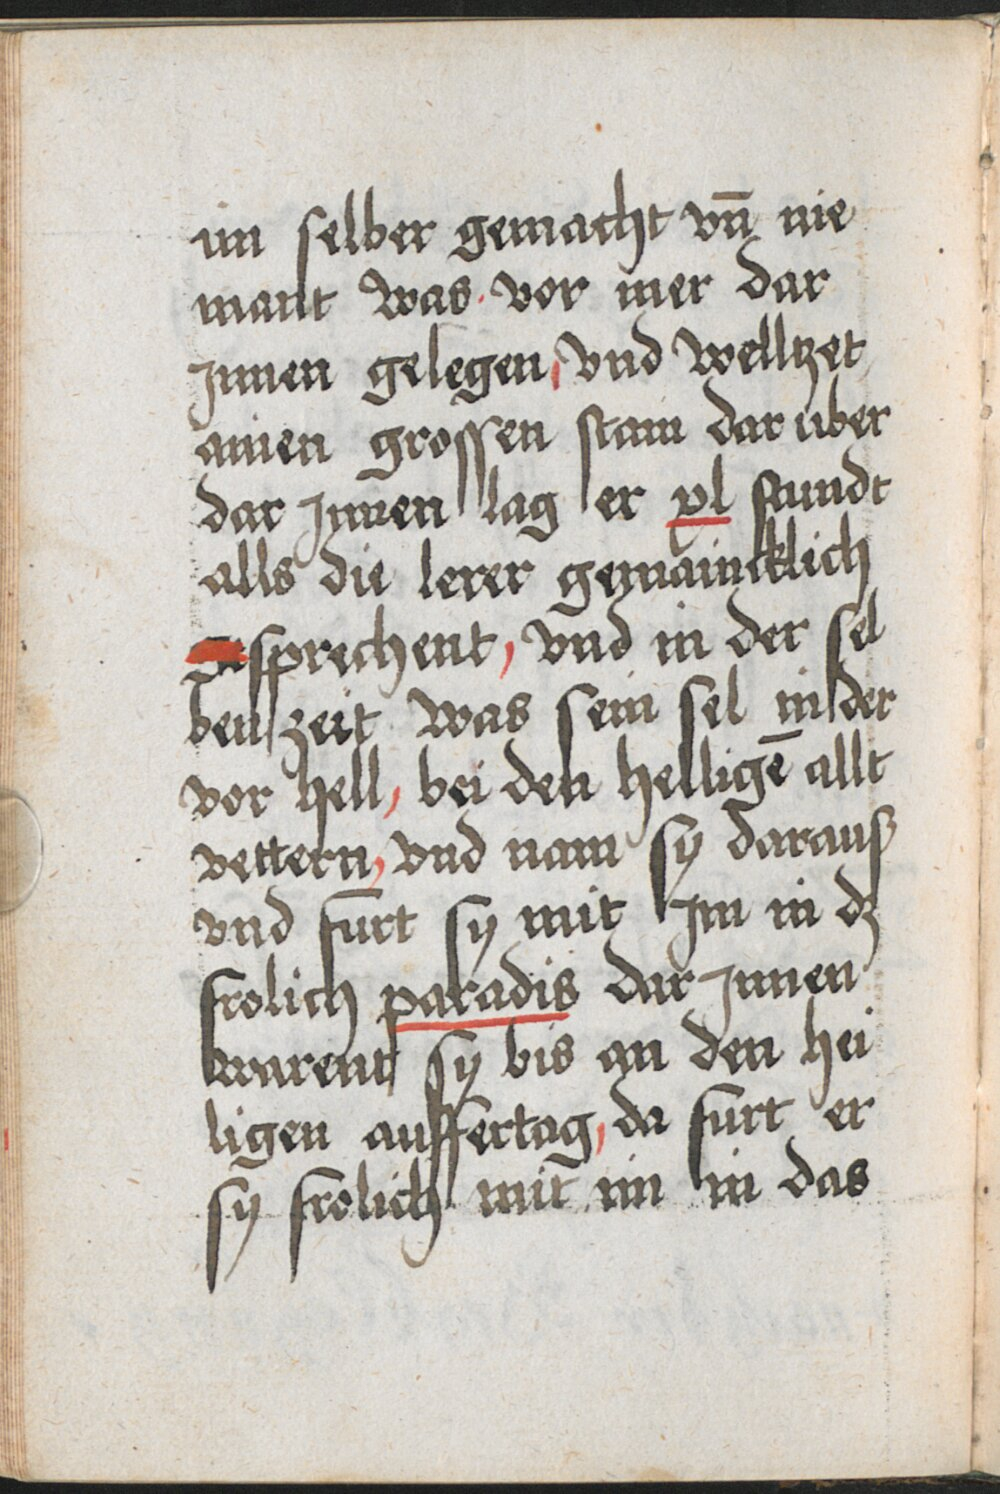 im selber gemacht vn̄ nie
mant was vor mer dar
Jnnen gelegen, vnd welltzet
ainen grossen stain dar uber
dar Jnnen lag er xl stundt
alls die lerer gemaincklich
sprechent, vnd in der sel
ben zeit was sein sel in der
vor hell, bei den helligē allt
vettern, vnd nam sy darauß
vnd furt sy mit Jm in dz
frolich paradis dar Jnnen
warent sy bis an den hei
ligen auffertag, da furt er
sy frolich mit im in das